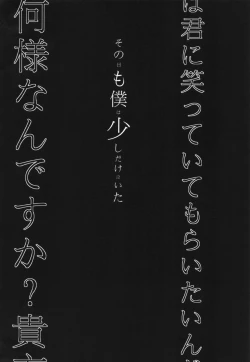 は君に笑っていてもらいたいん
その日も僕は少しだけ泣いた
何様なんですか?貴